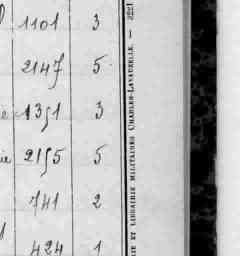 1101 3
2147 5
1351 3
ie 2155 5
741 2
424 1
IE ET LIBRAIRIE MILITAIRES CHARLES-LAVAUZELLE. —